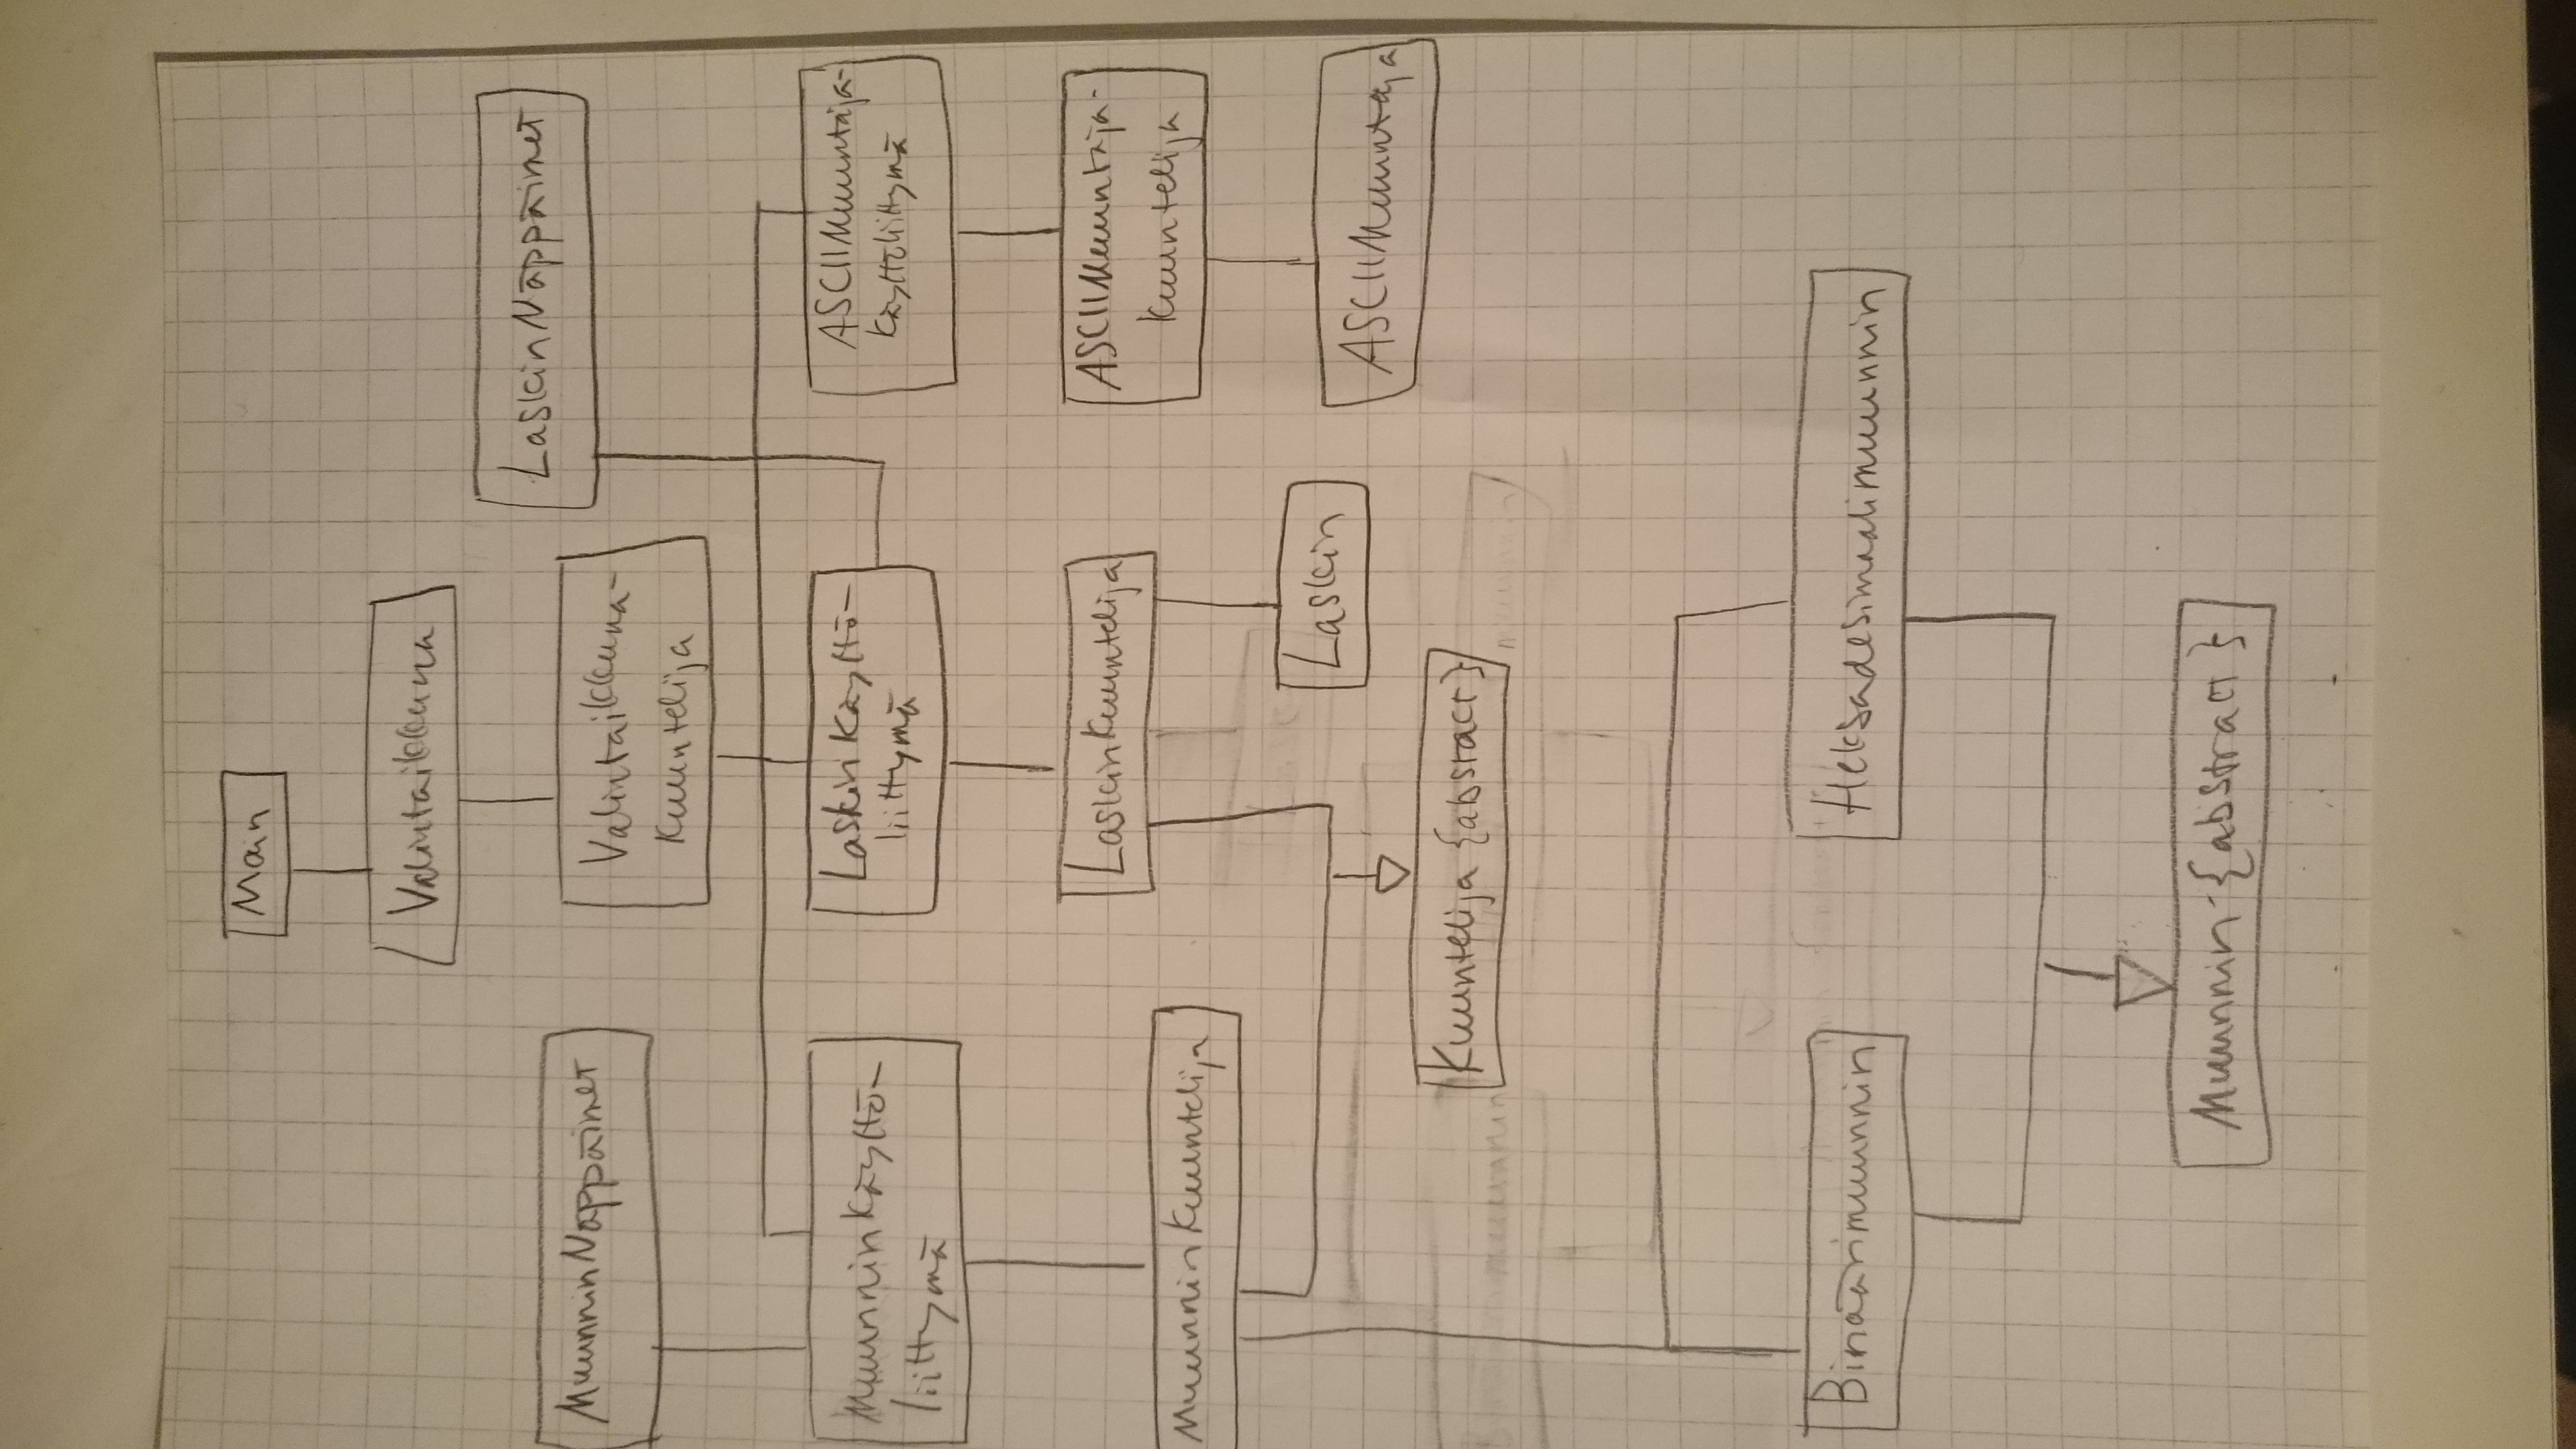 Main
Valintaikkuna
LaskinNäppäimet
MuunninNäppäimet
Valintaikkuna-
Kuuntelija
MuunninKäyttö-
liittymä
LaskinKäyttö-
liittymä
ASCIIMuuntaja-
Käyttöliittymä
LaskinKuuntelija
ASCIIMuuntaja-
Kuuntelija
MuunninKuuntelija
Laskin
ASCIIMuuntaja
Kuuntelija {abstact}
muunnin
muunnin
Binäärimuunnin
Heksadesimaalimuunnin
Muunnin {abstract}